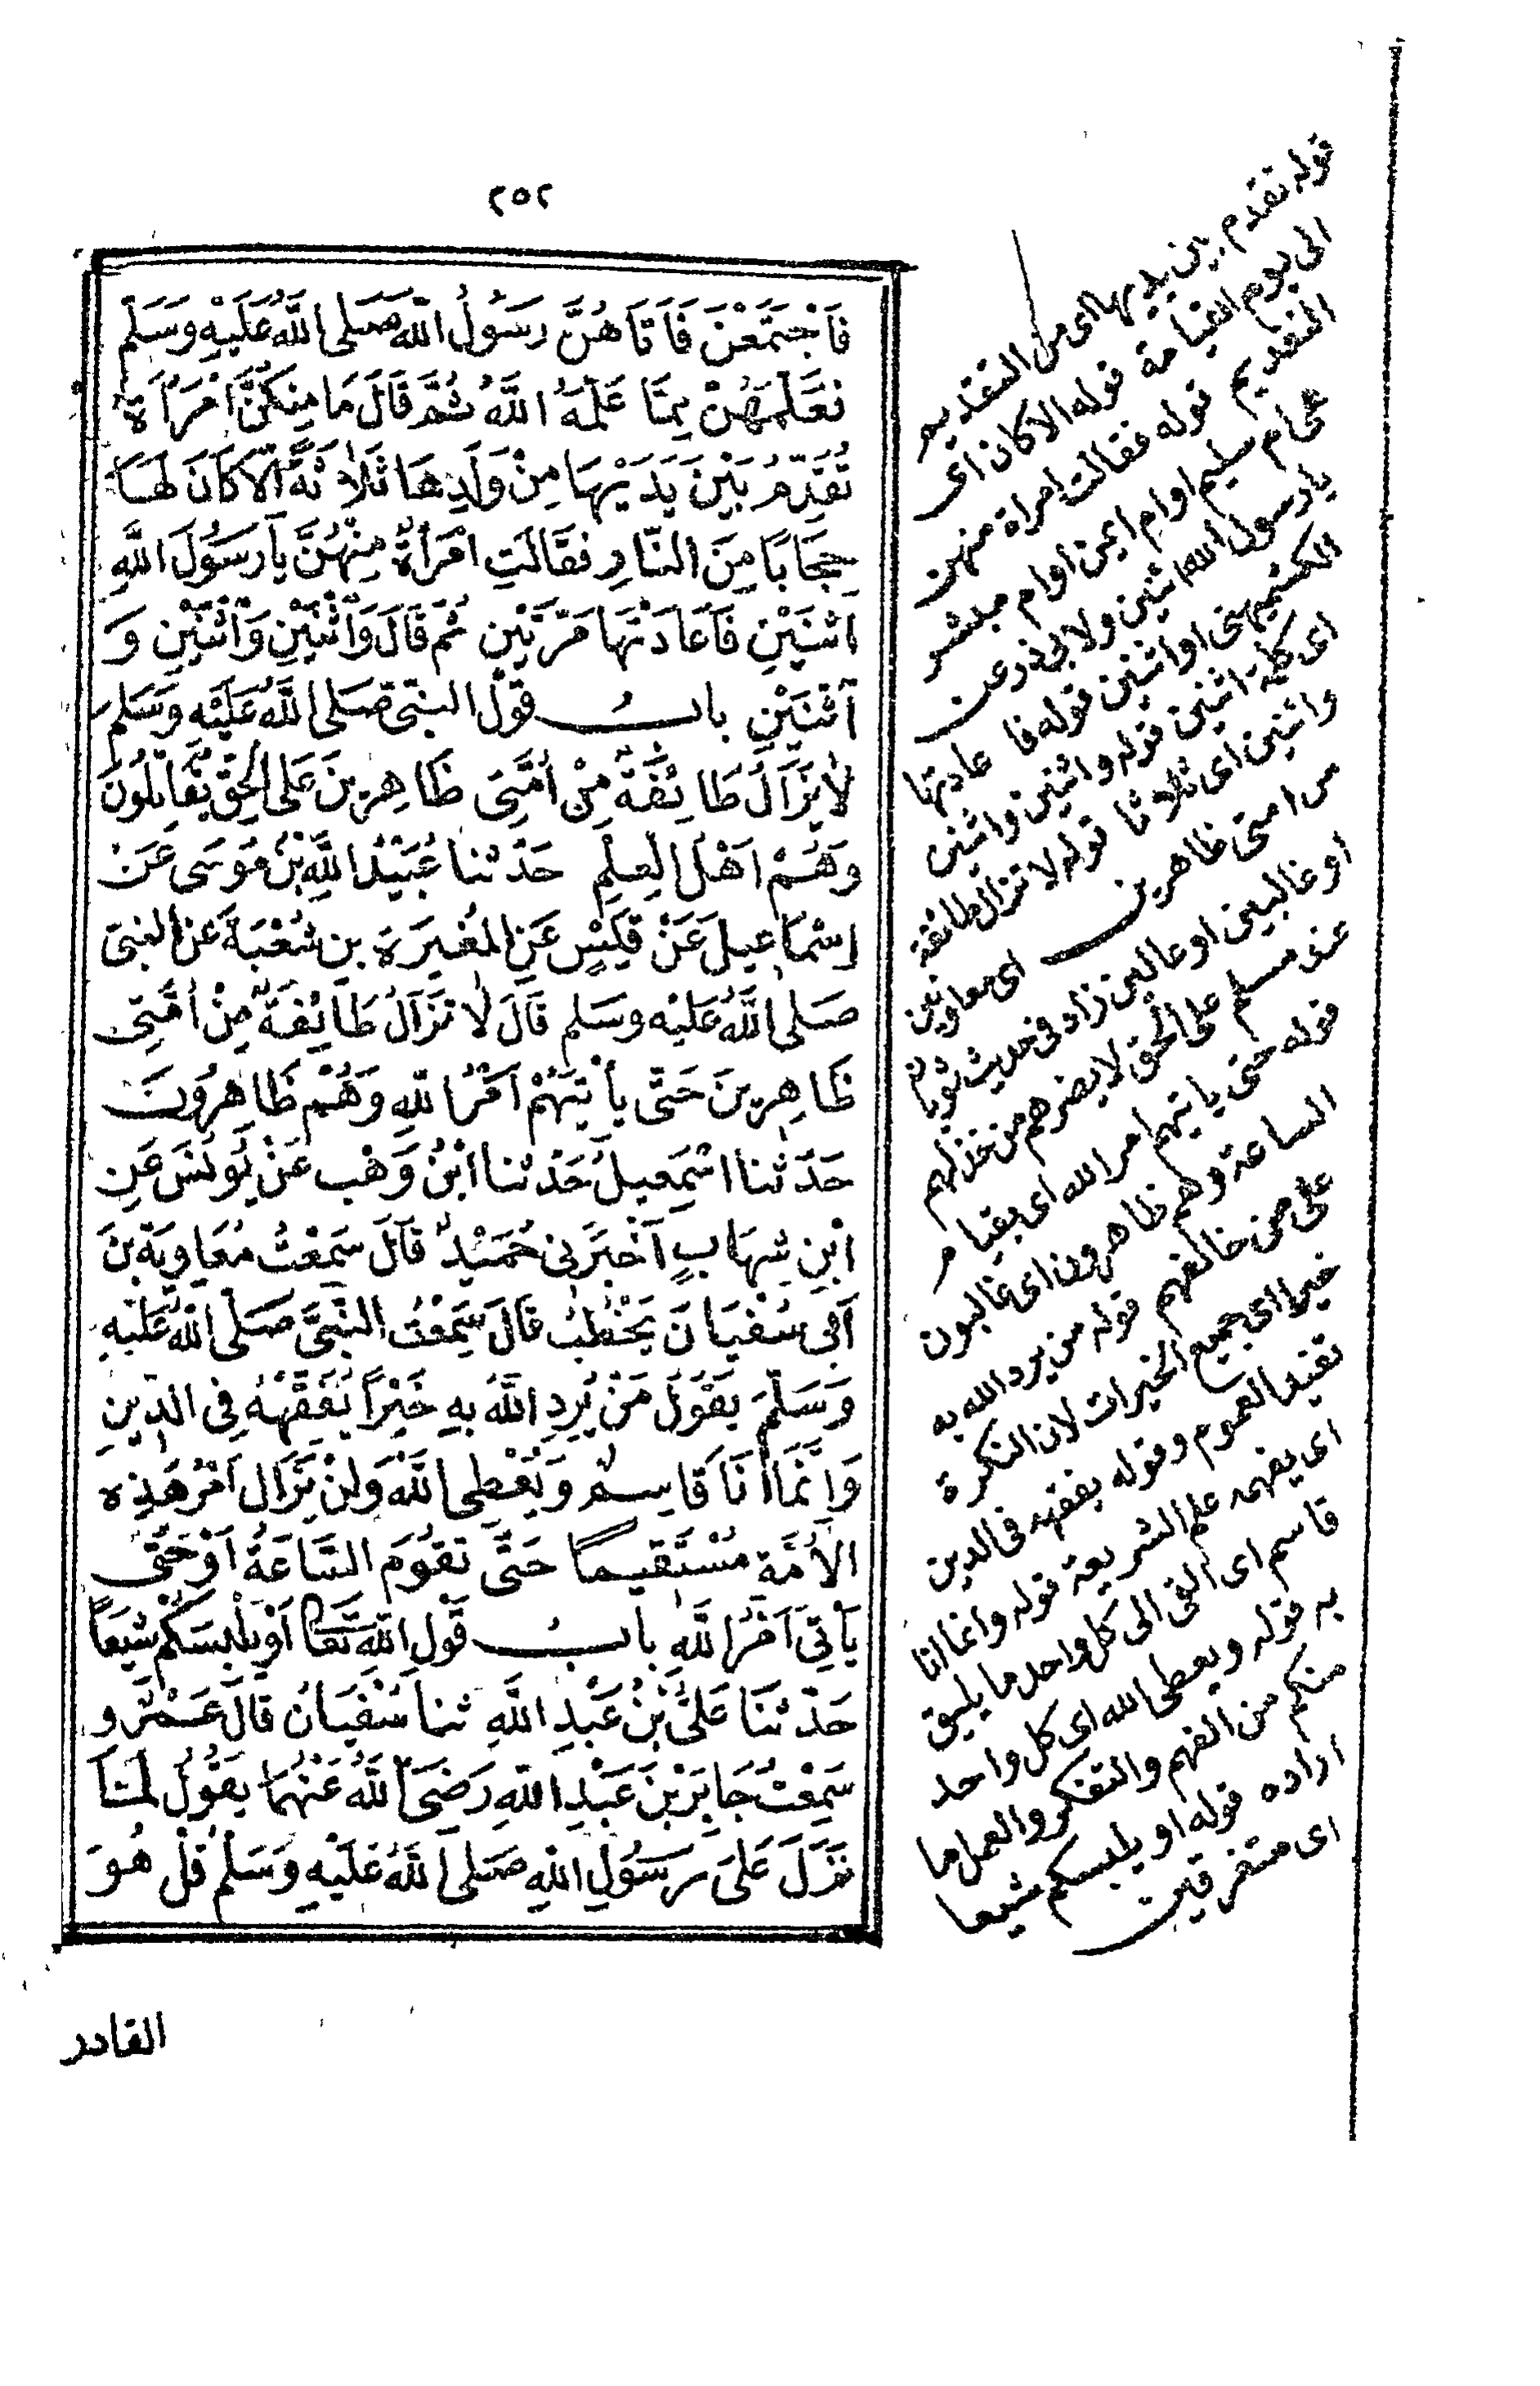 ٢٥٢
فَاجْتَمَعْنَ فَأَتَاهُنَّ رَسُولُ اللَّهِ صَلَّى اللَّهُ عَلَيْهِ وَسَلَّمَ
فَعَلَّمَهُنَّ مِمَّا عَلَّمَهُ اللَّهُ ثُمَّ قَالَ مَا مِنْكُنَّ امْرَأَةٌ
تُقَدِّمُ بَيْنَ يَدَيْهَا مِنْ وَلَدِهَا ثَلَاثَةً اِلَّا كَانَ لَهَا
حِجَابًا مِنَ النَّارِ فَقَالَتِ امْرَأَةٌ مِنْهُنَّ يَا رَسُولَ اللَّهِ
اثْنَيْنِ فَأَعَادَتْهَا مَرَّتَيْنِ ثُمَّ قَالَ وَاثْنَيْنِ وَاثْنَيْنِ وَ
اثْنَيْنِ بابُ قَوْلِ النَّبِيِّ صَلَّى اللَّهُ عَلَيْهِ وَسَلَّمَ
لَا يَزَالُ طَائِفَةٌ مِنْ أُمَّتِي ظَاهِرِينَ عَلَى الْحَقِّ يُقَاتِلُونَ
وَهُمْ اَهْلُ الْعِلْمِ حَدَّثنا عُبَيْدُ اللَّهِ بْنُ مُوسَى عَنْ
اِسْمَاعِيلَ عَنْ قَيْسٍ عَنِ الْمُغِيرَةِ بنِ شُعْبَةَ عَنِ النبىّ
صَلَّى اللَّهُ عَلَيْهِ وسَلَّم قَالَ لَا تَزَالُ طَائِفَةٌ مِنْ اُمَّتِى
ظَاهِرِينَ حَتَّى يَأْتِيَهُمْ اَمْرُ اللَّهِ وَهُمْ ظَاهِرُونَ
حَدَّثنا اسْمَعِيلُ حَدَّثنا ابْنُ وَهْبٍ عَنْ يُونُسَ عَنِ
ابْنِ شِهَابٍ اَخْبَرَنى حُمَيْدٌ قَالَ سَمِعْتُ مُعَاوِيَةَ بْنَ
اَبى سُفْيَانَ يَخْطُبُ قَالَ سَمِعْتُ النَّبِيَّ صَلَّى اللَّهُ عَلَيْهِ
وَسَلَّمَ يَقُولُ مَنْ يُرِدِ اللَّهُ بِهِ خَيْرًا يُفَقِّهْهُ فِى الدِّينِ
وَاِنَّمَا اَنَا قَاسِمٌ وَيُعْطِى اللَّهُ وَلَنْ يَزَالَ اَمْرُ هَذِهِ
الْاُمَّةِ مُسْتَقِيمًا حَتَّى تَقُومَ السَّاعَةُ اَوْ حَتَّى
يَأْتِيَ اَمْرُ اللَّهِ بابُ قَوْلِ اللَّهِ تَعَالَى اَوْ يَلْبِسَكُمْ شِيَعًا
حَدَّثَنَا عَلِيُّ بْنُ عَبْدِ اللَّهِ ثنا سُفْيَانُ قَالَ عَمْرٌو
سَمِعْتُ جَابِرَ بْنَ عَبْدِ اللَّهِ رَضِيَ اللَّهُ عَنْهُمَا يَقُولُ لَمَّا
نَزَلَ عَلَى رَسُولِ اللَّهِ صَلَّى اللَّهُ عَلَيْهِ وَسَلَّمَ قُلْ هُوَ
القادر
قوله تقدم بين يديها اى من التقديم
الى يوم القيامة قوله الا كان اى
التقديم قوله فقالت امراة منهن
هى ام سليم او ام ايمن او ام مبشر
يا رسول الله اثنين ولابى ذر عن
الكشميهنى او اثنين قوله فاعادتها
اى كلمة اثنين قوله واثنين واثنين
واثنين اى ثلاثا قوله لا تزال طائفة
من امتى ظاهرين اى معاونين
او غالبين او عالين زاد فى حديث ثوبان
عند مسلم على الحق لا يضرهم من خذلهم
قوله حتى ياتيهم امر الله اى بقيام
الساعة وهم ظاهرون اى غالبون
على من خالفهم قوله من يرد الله به
خيرا اى جميع الخيرات لان النكرة
تفيد العموم وقوله يفقهه فى الدين
اى يفهمه علم الشريعة قوله وانما انا
قاسم اى القى الى كل واحد ما يليق
به قوله ويعطى الله اى كل واحد
منكم من الفهم والتفكر والعمل ما
اراده قوله او يلبسكم شيعا
اى متفرقين